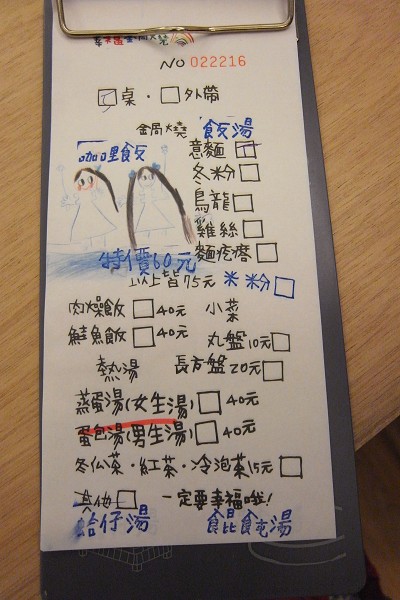 NO 022216
桌・外帶
鍋燒 飯湯
咖哩飯
意麵
冬粉
烏龍
雞絲
麵疙瘩
特價60元
以上皆75元 米粉
肉燥飯 40元 小菜
鮭魚飯 40元
丸盤10元
熱湯 長方盤20元
蒸蛋湯(女生湯) 40元
蛋包湯(男生湯) 40元
冬瓜茶・紅茶・冷泡茶15元
其他 一定要幸福哦!
蛤仔湯 餛飩湯